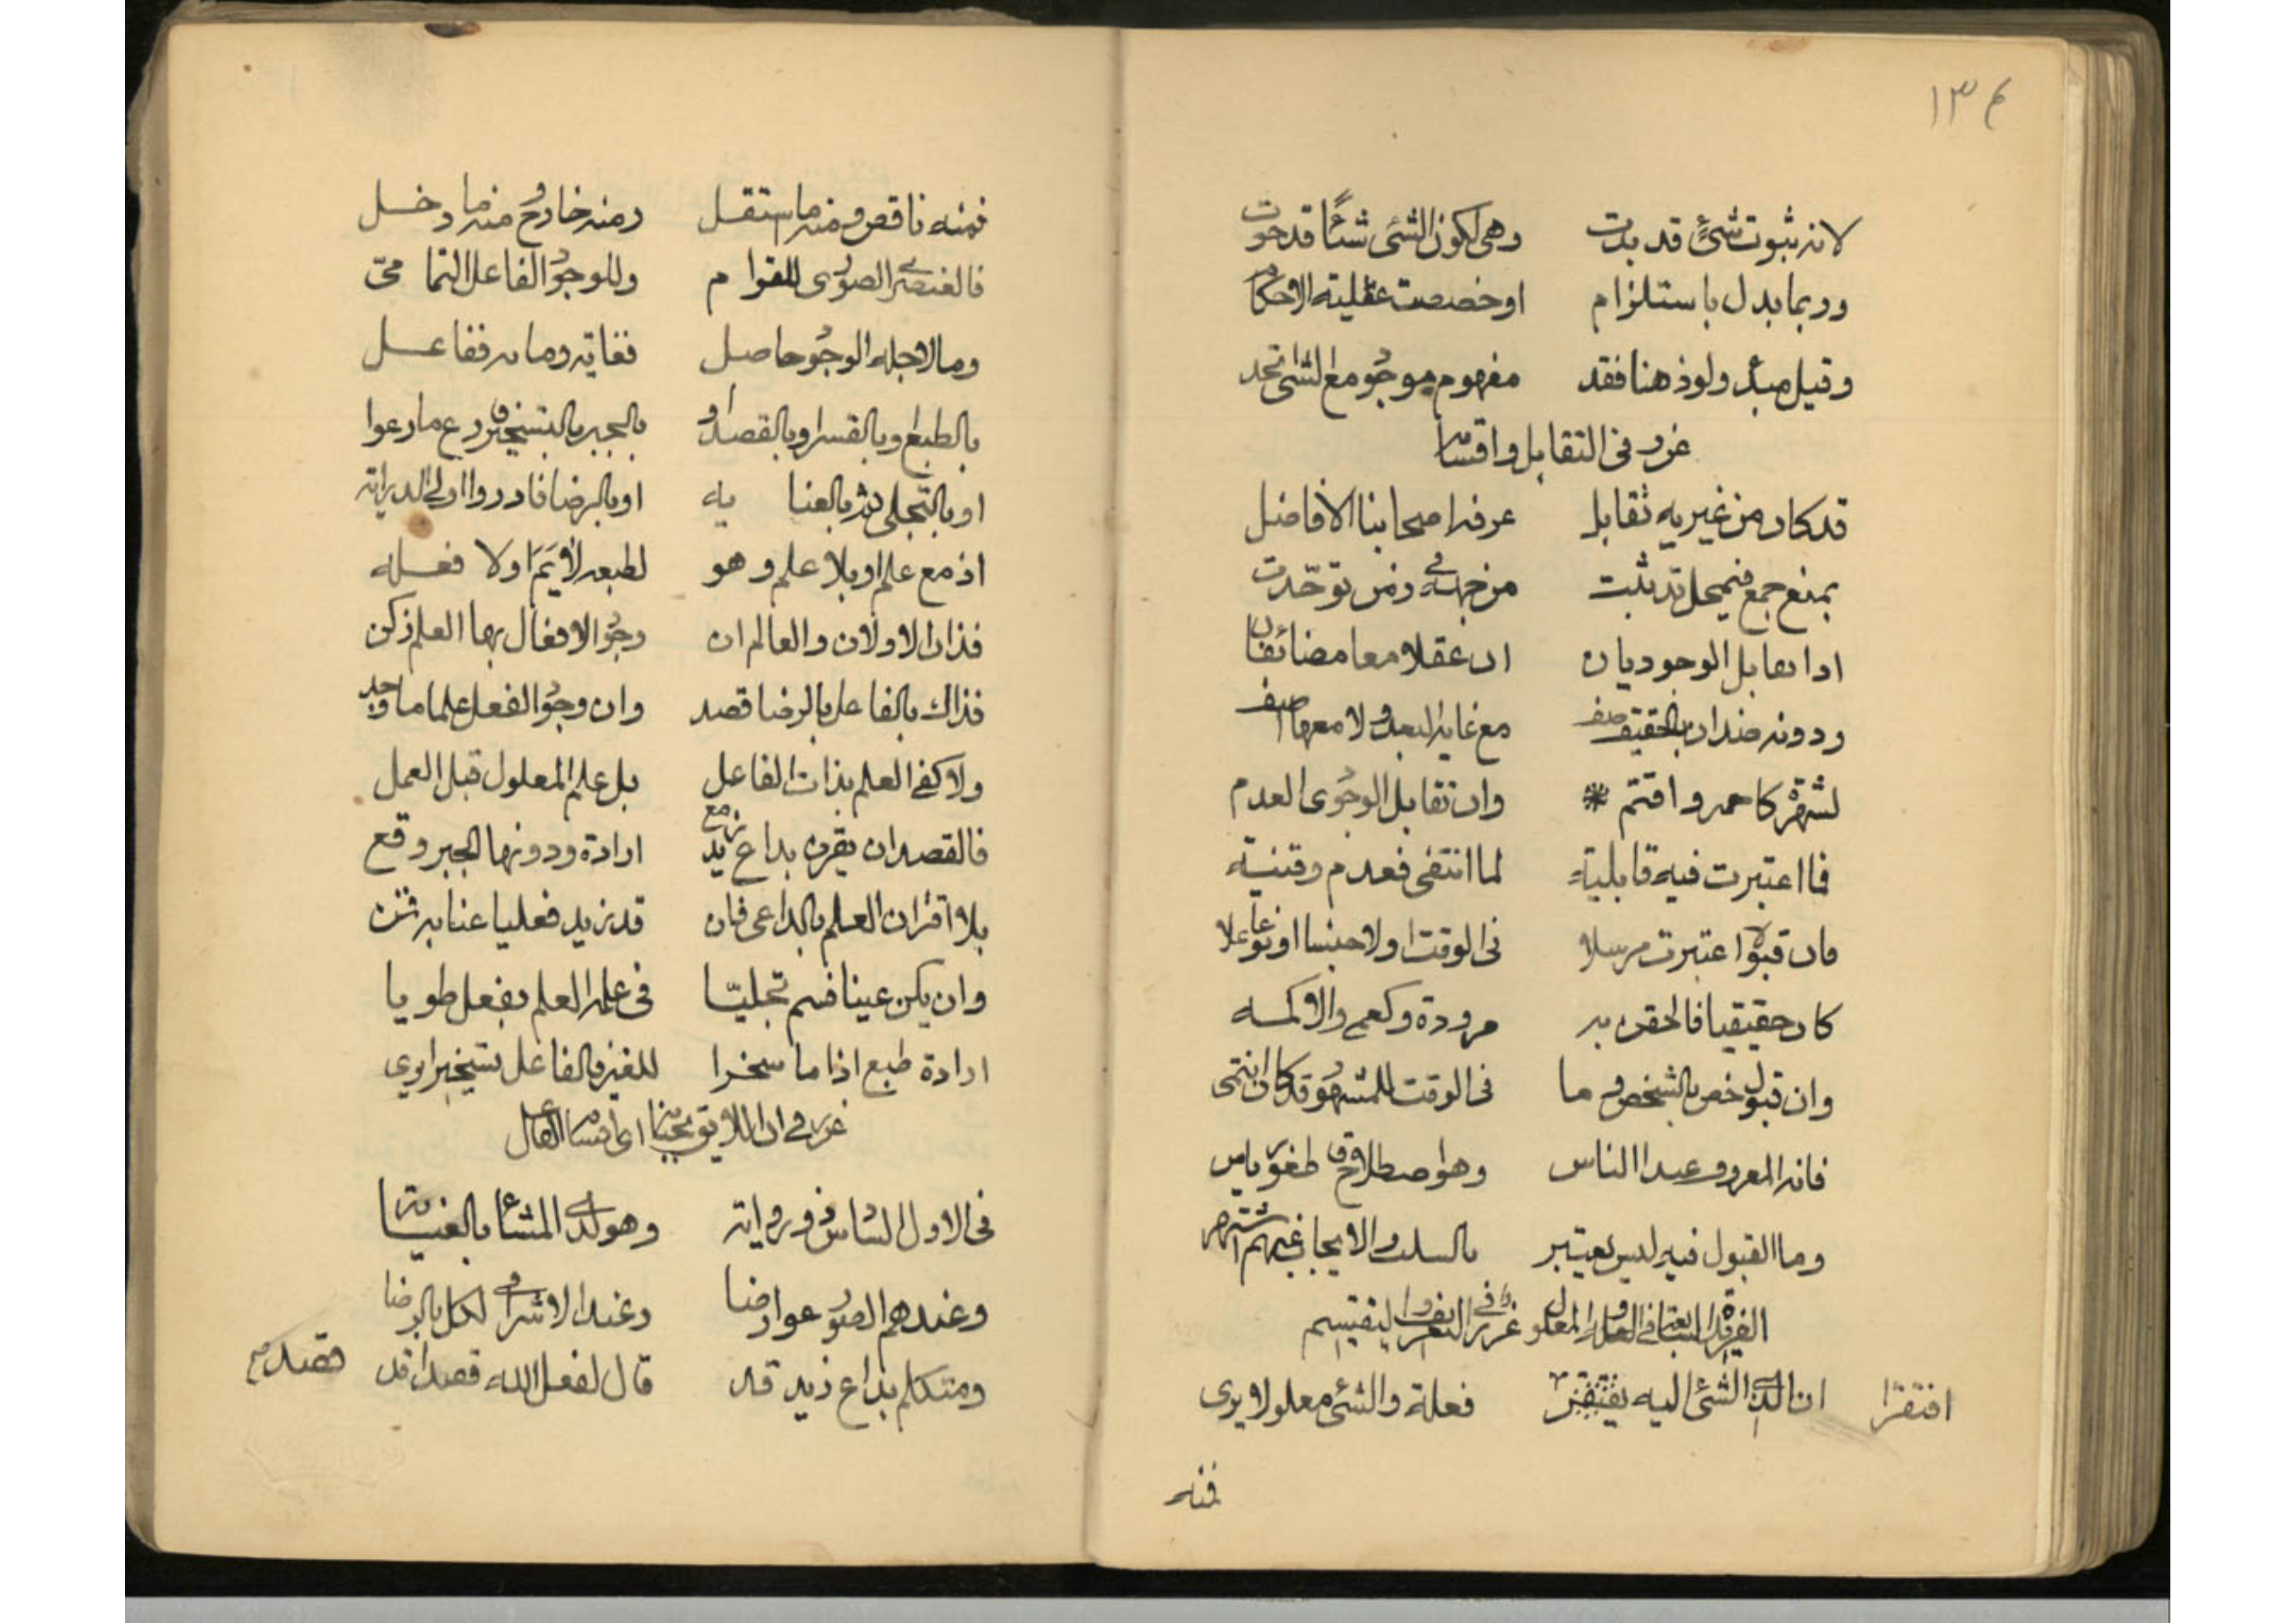 ١٣٤
لانه ثبوت شئ قد بدت وهی لکون الشئی شیئا قد حوت
وربما بدل باستلزام او خصصت عقلیة الاحکام
وقیل مبدء ولو ذهنا فقد مفهوم موجود مع الشئ اتحد
غرر فی التقابل واقسامه
قد کان من غیریه تقابل عرفه اصحابنا الافاضل
بمنع جمع فی محل قد ثبت من جهة فی زمن توحدت
اذا تقابل الوجودیان ان عقلا معا مضائفان
ودونه ضدان بالحقیقی صف مع غایة البعد ولا معها اضف
لشهرة کاحمر واقتم * وان تقابل الوجودی العدم
فما اعتبرت فیه قابلیة لما انتفی فعدم وقنیة
فان قبولا اعتبرت مرسلا فی الوقت اولا جنسا او نوعا علا
کان حقیقیا فالحقن به مرودة وکعمی والاکمه
وان قبول خص بالشخص وما فی الوقت للمشهور قد کان انتمی
فانه المعروف عند الناس وهو اصطلاح قاطیغوریاس
وما القبول فیه لیس یعتبر بالسلب والایجاب غیرهم اشتهر
الفریدة السابعة فی العلة والمعلول غرر فی التعریف والتقسیم
ان الذی الشئی الیه یفتقر فعلة والشئی معلولا یری
افتقرا
فمنه
فمنه ناقص ومنه ما استقل ومنه خارج ومنه ما دخل
فالعنصری الصوری للقوام وللوجود الفاعل التمامی
وما لاجله الوجود حاصل فغایة وما به ففاعل
بالطبع او بالقسر او بالقصد او بالجبر بالتسخیر فارع ما رعوا
او بالتجلی ثم بالعنایه او بالرضا فادروا اولی الدرایة
اذ مع علم او بلا علم وهو لطبعه لائم او لا فعله
فذان الاولان والعالم ان وجود الافعال بها العلم زکن
فذاک بالفاعل بالرضا قصد وان وجود الفعل علما ما وجد
ولا کفی العلم بذات الفاعل بل علم المعلول قبل العمل
فالقصد ان یقرن بداع زید مع ارادة ودونها الجبر وقع
بلا اقتران العلم بالداعی فان قد زید فعلیا عنایه قمن
وان یکن عینا فسم تجلیا فی علمه العلم بفعل طویا
ارادة طبع اذا ما سخرا للغیر فالفاعل تسخیرا یری
غرر فی ان اللایق بجنابه ای اقسام الفاعل
فی الاول السادس ذو روایة وهو لدی المشاء بالعنایة
وعندهم الصور عوارضا وعند الاشراق لکل بالرضا
ومتکلم بداع زید قد قال لفعل الله قصدا قد
قصد م